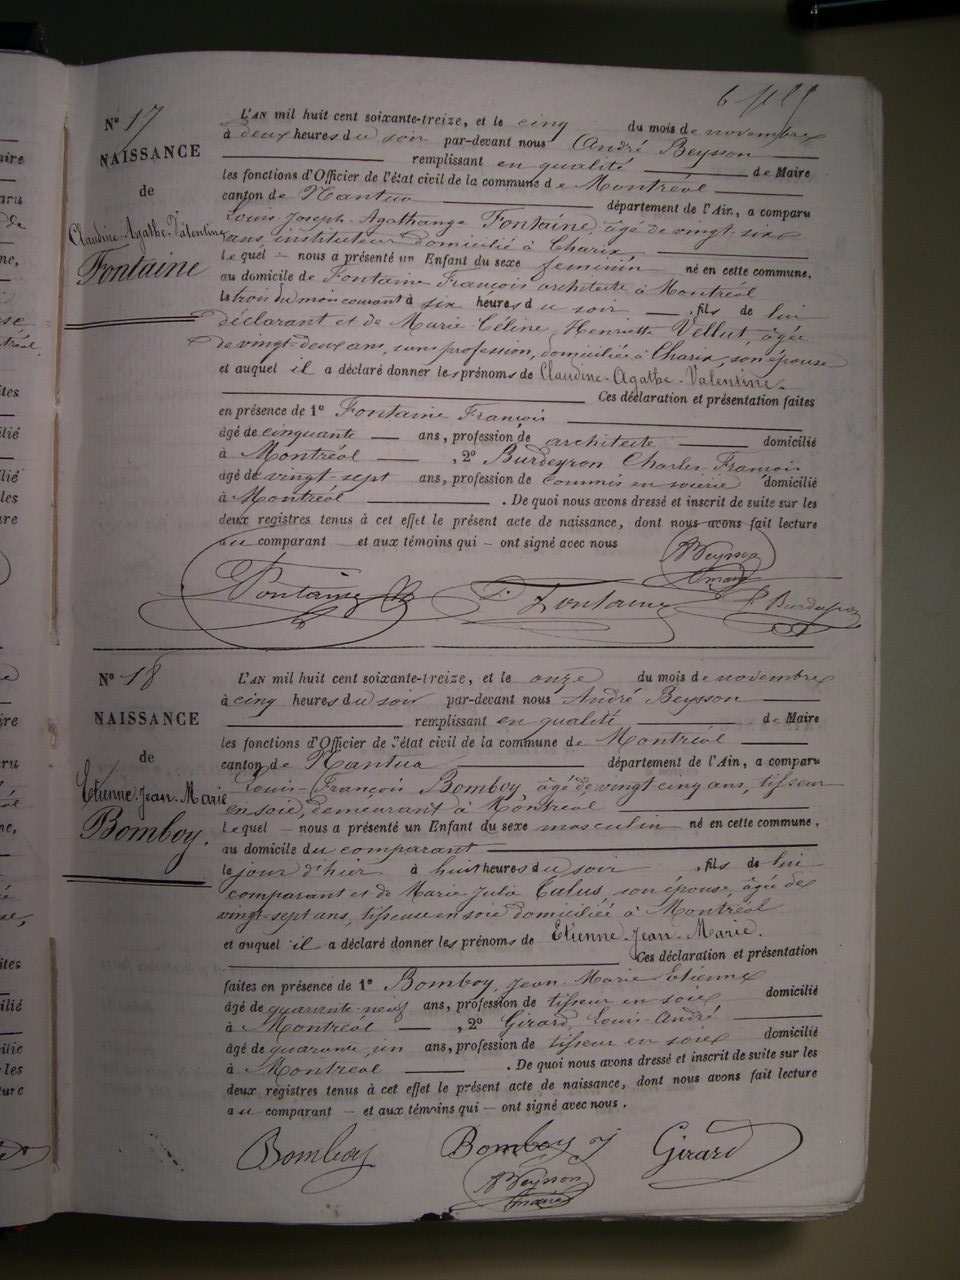 Nº 17
NAISSANCE
de
Claudine-Agathe-Valentine
Fontaine
L'AN mil huit cent soixante-treize, et le cinq du mois de novembre
à deux heures du soir par-devant nous André Beysson
remplissant en qualité de Maire
les fonctions d'Officier de l'état civil de la commune de Montréal
canton de Nantua département de l'Ain, a comparu
Louis-Joseph-Agathange Fontaine, âgé de vingt-six
ans, instituteur domicilié à Charix
Lequel - nous a présenté un Enfant du sexe féminin né en cette commune,
au domicile de Fontaine François architecte à Montréal
le trois du mois courant à six heures du soir , fils de lui
déclarant et de Marie-Céline, Henriette Vellut, âgée
de vingt-deux ans, sans profession, domiciliée à Charix, son épouse
et auquel il a déclaré donner les prénoms de Claudine-Agathe-Valentine.
Ces déclaration et présentation faites
en présence de 1º Fontaine François
âgé de cinquante ans, profession de architecte domicilié
à Montréal , 2º Burdeyron Charles François
âgé de vingt-sept ans, profession de commis en soierie domicilié
à Montréal . De quoi nous avons dressé et inscrit de suite sur les
deux registres tenus à cet effet le présent acte de naissance, dont nous avons fait lecture
au comparant et aux témoins qui - ont signé avec nous
ABeysson
maire
Fontaine F. Fontaine Burdeyron
Nº 18
NAISSANCE
de
Etienne-Jean-Marie
Bomboy.
L'AN mil huit cent soixante-treize, et le onze du mois de novembre
à cinq heures du soir par-devant nous André Beysson
remplissant en qualité de Maire
les fonctions d'Officier de l'état civil de la commune de Montréal
canton de Nantua département de l'Ain, a comparu
Louis-François Bomboy, âgé de vingt cinq ans, tisseur
en soie, demeurant à Montréal
Lequel - nous a présenté un Enfant du sexe masculin né en cette commune,
au domicile du comparant
le jour d'hier à huit heures du soir , fils de lui
comparant et de Marie-Julie Talus, son épouse, âgée de
vingt-sept ans, tisseuse en soie domiciliée à Montréal
et auquel il a déclaré donner les prénoms de Etienne-Jean-Marie.
Ces déclaration et présentation
faites en présence de 1º Bomboy, Jean-Marie Etienne
âgé de quarante-neuf ans, profession de tisseur en soie domicilié
à Montréal , 2º Girard, Louis-André
âgé de quarante un ans, profession de tisseur en soie domicilié
à Montréal . De quoi nous avons dressé et inscrit de suite sur les
deux registres tenus à cet effet le présent acte de naissance, dont nous avons fait lecture
au comparant - et aux témoins qui - ont signé avec nous.
Bomboy Bomboy j Girard
ABeysson
maire